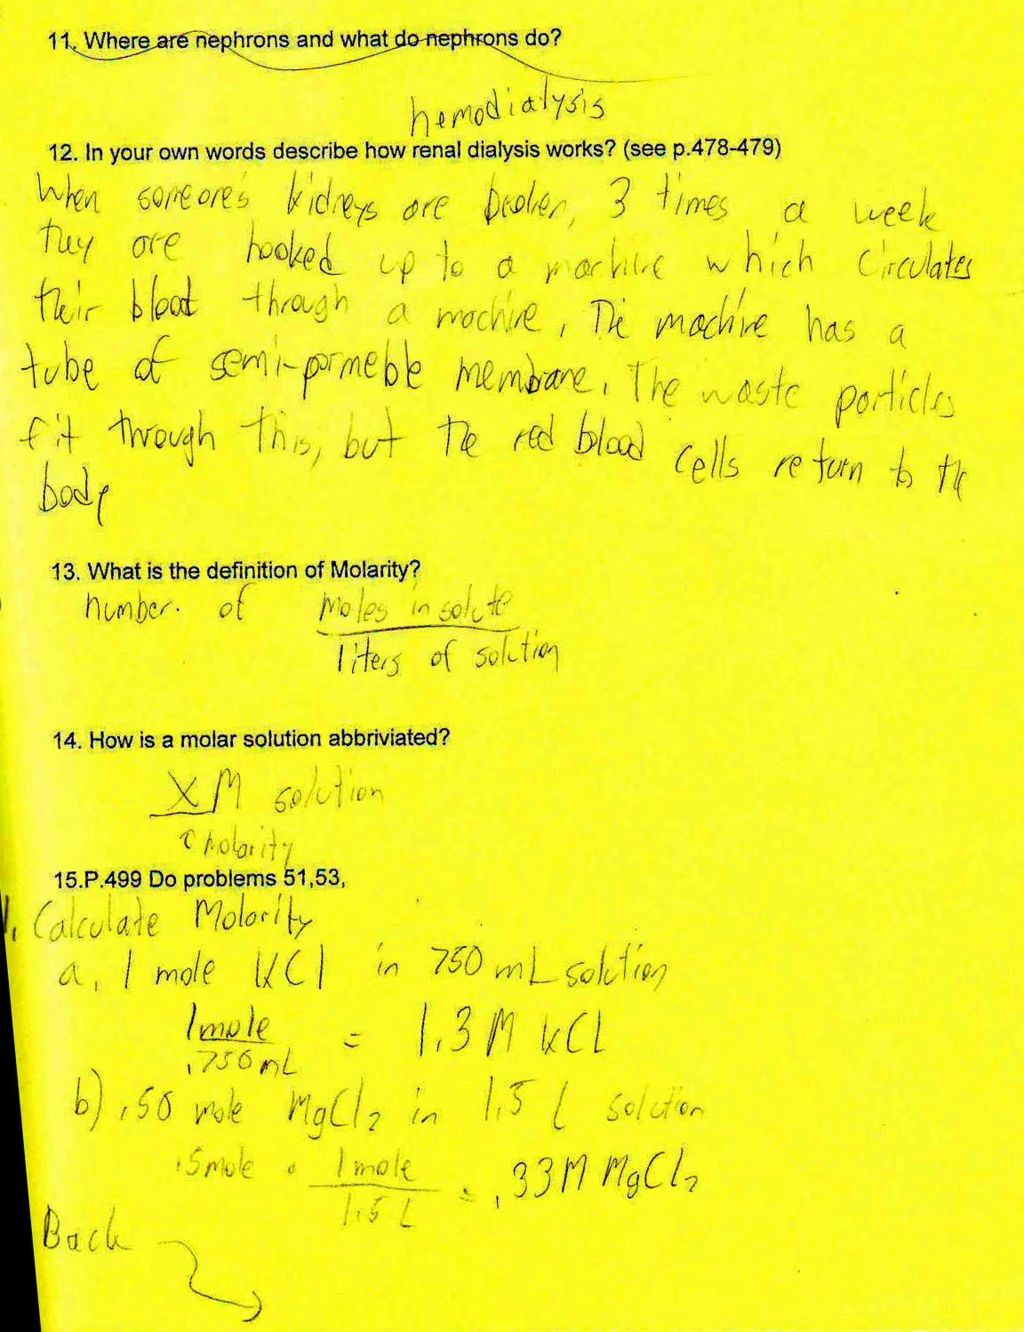 11. Where are nephrons and what do nephrons do?
hemodialysis
12. In your own words describe how renal dialysis works? (see p.478-479)
When someone's kidneys are broken, 3 times a week
they are hooked up to a machine which circulates
their blood through a machine. The machine has a
tube of semi-permeble membrane. The waste particles
fit through this, but the red blood cells return to the
body
13. What is the definition of Molarity?
number of moles in solute
liters of solution
14. How is a molar solution abbriviated?
XM solution
molarity
15.P.499 Do problems 51,53,
1. Calculate Molority
a. 1 mole KCl in 750 mL solution
1mole = 1.3 M KCL
.750mL
b) .50 mole MgCl2 in 1.5 L solution
.5mole • 1 mole = .33M MgCl2
1.5 L
Back